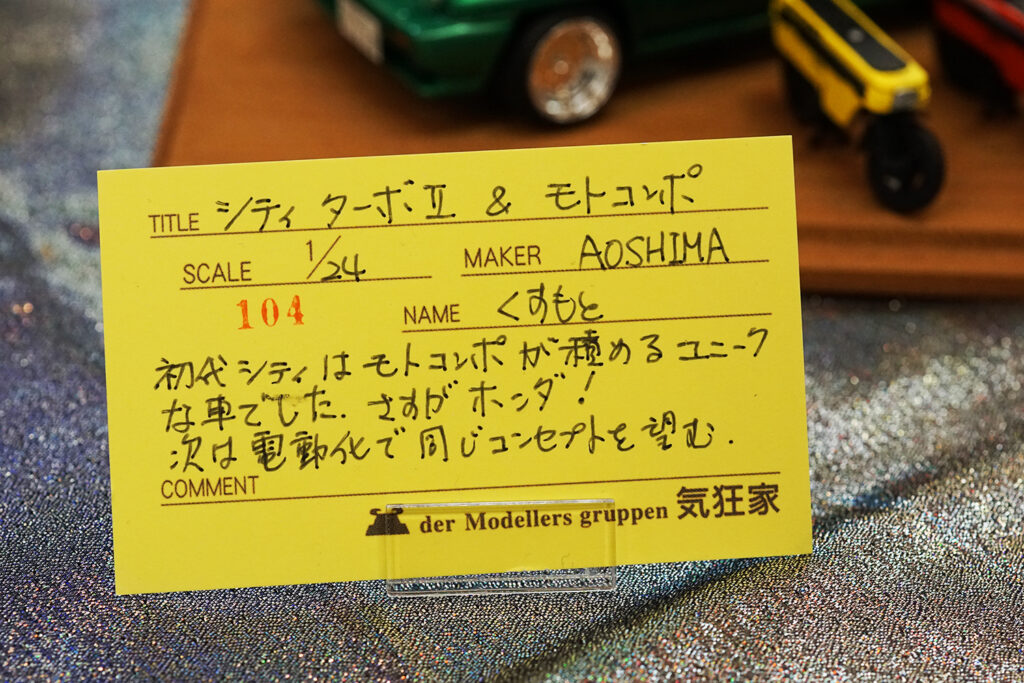 TITLE シティ ターボⅡ & モトコンポ
SCALE 1/24
MAKER AOSHIMA
104
NAME くすもと
初代シティはモトコンポが積めるユニーク
な車でした. さすがホンダ!
次は電動化で同じコンセプトを望む.
COMMENT
der Modellers gruppen 気狂家